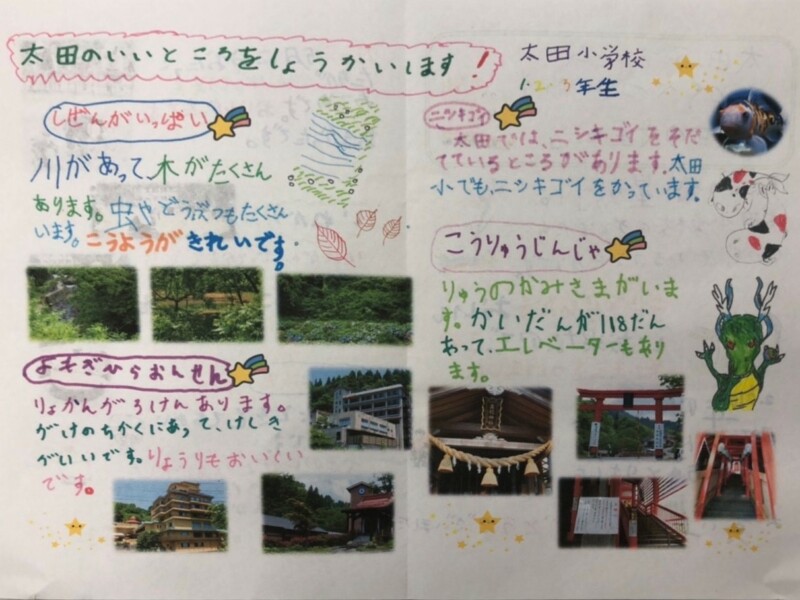 太田のいいところをしょうかいします!
太田小学校
1.2.3年生
しぜんがいっぱい
川があって、木がたくさん
あります。虫やどうぶつもたくさん
います。こうようがきれいです。
よもぎひらおんせん
りょかんが3けんあります。
がけのちかくにあって、けしき
がいいです。りょうりもおいしい
です。
ニシキゴイ
太田では、ニシキゴイをそだ
てているところがあります。太田
小でも、ニシキゴイをかっています。
こうりゅうじんじゃ
りゅうのかみさまがいま
す。かいだんが118だん
あって、エレベーターもあり
ます。